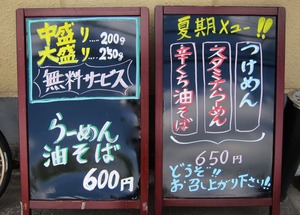 中盛り…200g
大盛り…250g
無料サービス
らーめん
油そば
600円
夏期メニュー!!
つけめん
スタミナらーめん
辛くち油そば
650円
どうぞ!!
お召し上がり下さい!!